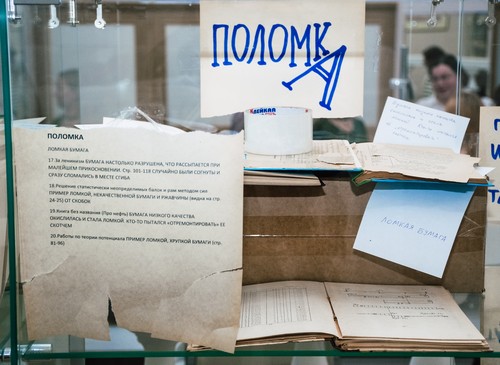 ПОЛОМКА
КЛЕЙКАЯ
ПОЛОМКА
ЛОМКАЯ БУМАГА
17.За ленинизм БУМАГА НАСТОЛЬКО РАЗРУШЕНА, ЧТО РАССЫПАЕТСЯ ПРИ
МАЛЕЙШЕМ ПРИКОСНОВЕНИИ. Стр. 101-118 СЛУЧАЙНО БЫЛИ СОГНУТЫ И
СРАЗУ СЛОМАЛИСЬ В МЕСТЕ СГИБА
18.Решение статистически неопределимых балок и рам методом сил
ПРИМЕР ЛОМКОЙ, ЖЕЛТОЙ БУМАГИ И РЖАВЧИНЫ (видна на стр.
24-25) ОТ СКОБОК
19.Книга без названия (Про нефть) БУМАГА НИЗКОГО КАЧЕСТВА
ОКИСЛИЛАСЬ И СТАЛА ЛОМКОЙ. КТО-ТО ПЫТАЛСЯ «ОТРЕМОНТИРОВАТЬ» ЕЕ
СКОТЧЕМ
20.Работы по теории потенциала ПРИМЕР ЛОМКОЙ, ХРУПКОЙ БУМАГИ (стр.
81-96)
ЛОМКАЯ БУМАГА